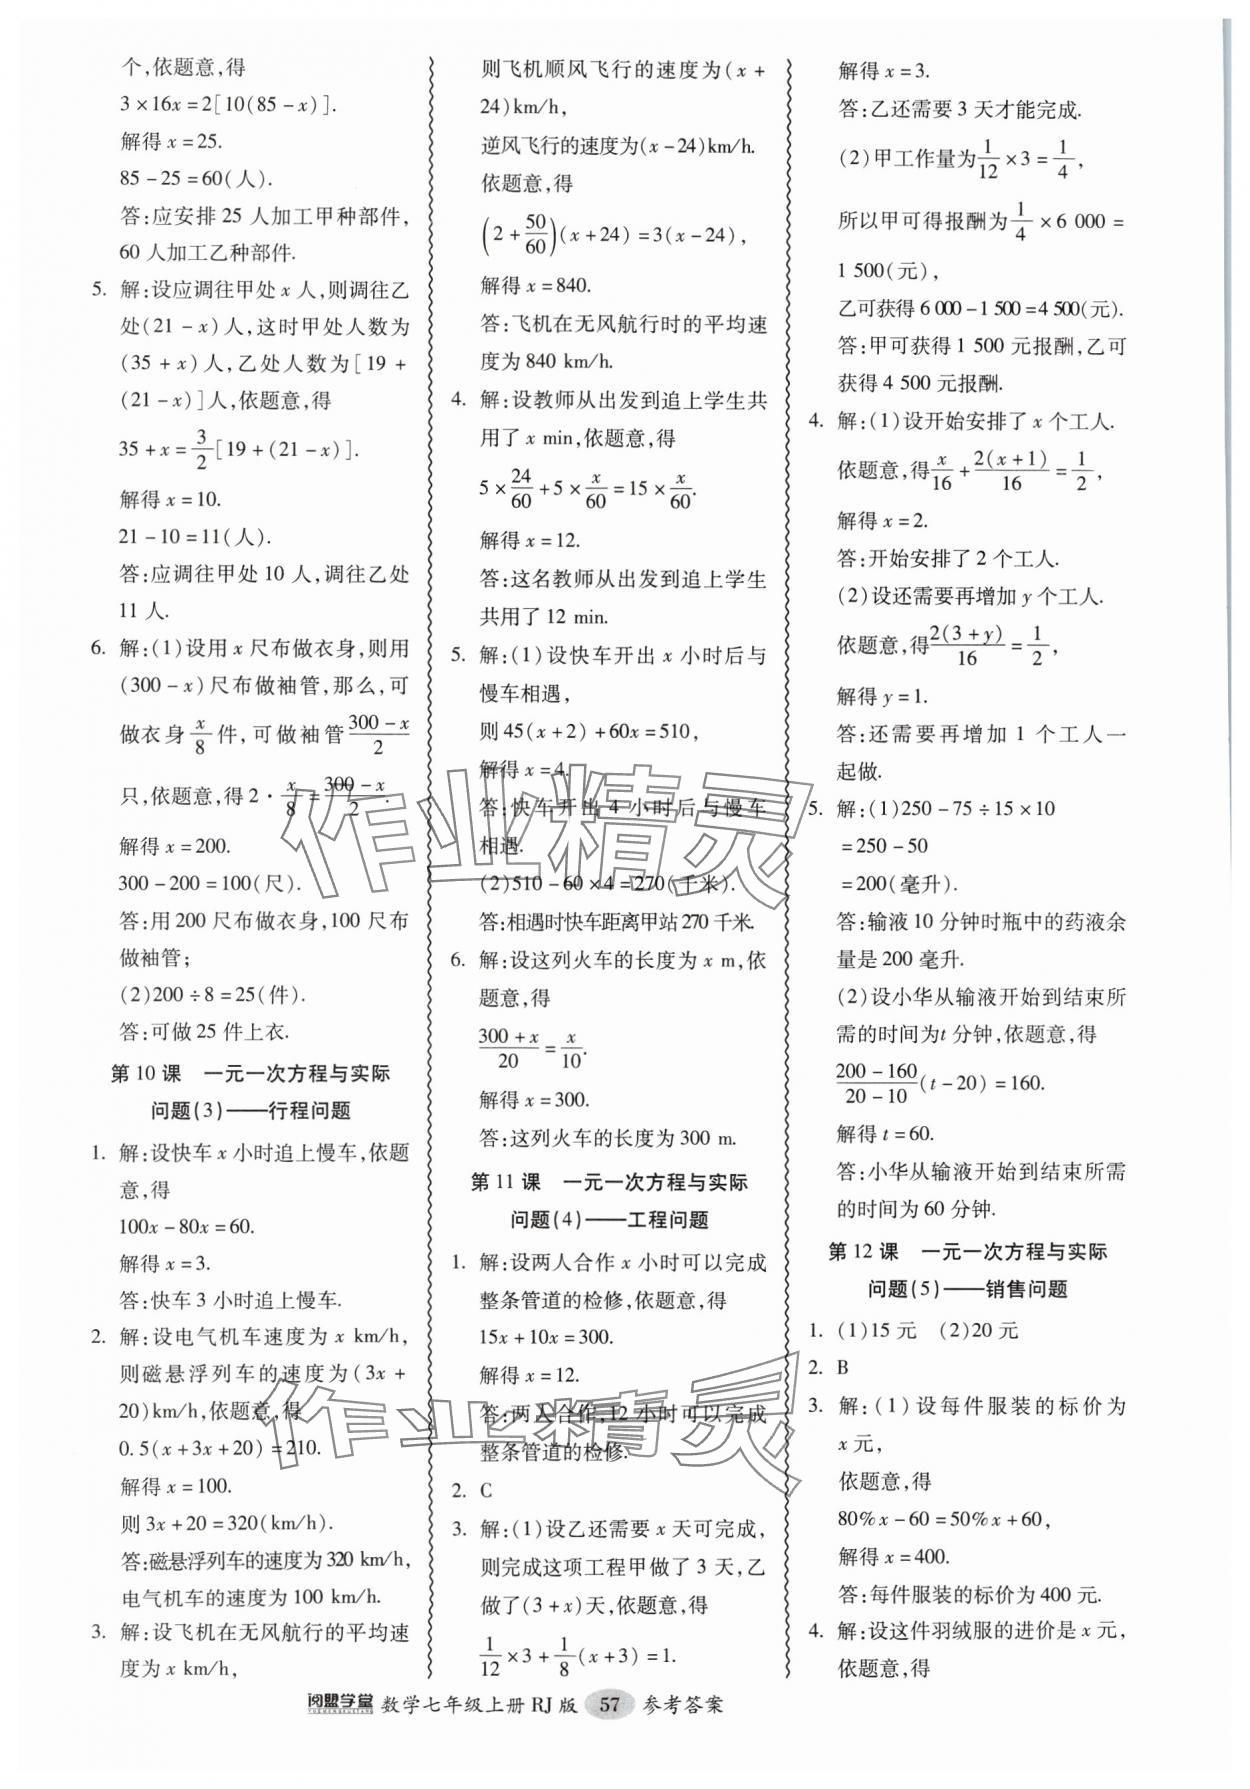 个,依题意,得
3×16x=2[10(85-x)].
解得 x=25.
85-25=60(人).
答:应安排 25 人加工甲种部件,
60 人加工乙种部件.
5. 解:设应调往甲处 x 人,则调往乙
处(21-x)人,这时甲处人数为
(35+x)人,乙处人数为[19+
(21-x)]人,依题意,得
35+x=3/2[19+(21-x)].
解得 x=10.
21-10=11(人).
答:应调往甲处 10 人,调往乙处
11 人.
6. 解:(1)设用 x 尺布做衣身,则用
(300-x)尺布做袖管,那么,可
做衣身 x/8 件,可做袖管 (300-x)/2
只,依题意,得 2·x/8=(300-x)/2.
解得 x=200.
300-200=100(尺).
答:用 200 尺布做衣身,100 尺布
做袖管;
(2)200÷8=25(件).
答:可做 25 件上衣.
第 10 课 一元一次方程与实际
问题(3)——行程问题
1. 解:设快车 x 小时追上慢车,依题
意,得
100x-80x=60.
解得 x=3.
答:快车 3 小时追上慢车.
2. 解:设电气机车速度为 x km/h,
则磁悬浮列车的速度为(3x+
20)km/h,依题意,得
0.5(x+3x+20)=210.
解得 x=100.
则 3x+20=320(km/h).
答:磁悬浮列车的速度为 320 km/h,
电气机车的速度为 100 km/h.
3. 解:设飞机在无风航行的平均速
度为 x km/h,
则飞机顺风飞行的速度为(x+
24)km/h,
逆风飞行的速度为(x-24)km/h.
依题意,得
(2+50/60)(x+24)=3(x-24),
解得 x=840.
答:飞机在无风航行时的平均速
度为 840 km/h.
4. 解:设教师从出发到追上学生共
用了 x min,依题意,得
5×24/60+5×x/60=15×x/60.
解得 x=12.
答:这名教师从出发到追上学生
共用了 12 min.
5. 解:(1)设快车开出 x 小时后与
慢车相遇,
则 45(x+2)+60x=510,
解得 x=4.
答:快车开出 4 小时后与慢车
相遇.
(2)510-60×4=270(千米).
答:相遇时快车距离甲站 270 千米.
6. 解:设这列火车的长度为 x m,依
题意,得
(300+x)/20=x/10.
解得 x=300.
答:这列火车的长度为 300 m.
第 11 课 一元一次方程与实际
问题(4)——工程问题
1. 解:设两人合作 x 小时可以完成
整条管道的检修,依题意,得
15x+10x=300.
解得 x=12.
答:两人合作,12 小时可以完成
整条管道的检修.
2. C
3. 解:(1)设乙还需要 x 天可完成,
则完成这项工程甲做了 3 天,乙
做了(3+x)天,依题意,得
1/12×3+1/8(x+3)=1.
解得 x=3.
答:乙还需要 3 天才能完成.
(2)甲工作量为 1/12×3=1/4,
所以甲可得报酬为 1/4×6 000=
1 500(元),
乙可获得 6 000-1 500=4 500(元).
答:甲可获得 1 500 元报酬,乙可
获得 4 500 元报酬.
4. 解:(1)设开始安排了 x 个工人.
依题意,得 x/16+2(x+1)/16=1/2,
解得 x=2.
答:开始安排了 2 个工人.
(2)设还需要再增加 y 个工人.
依题意,得 2(3+y)/16=1/2,
解得 y=1.
答:还需要再增加 1 个工人一
起做.
5. 解:(1)250-75÷15×10
=250-50
=200(毫升).
答:输液 10 分钟时瓶中的药液余
量是 200 毫升.
(2)设小华从输液开始到结束所
需的时间为t 分钟,依题意,得
(200-160)/(20-10)(t-20)=160.
解得 t=60.
答:小华从输液开始到结束所需
的时间为 60 分钟.
第 12 课 一元一次方程与实际
问题(5)——销售问题
1. (1)15 元 (2)20 元
2. B
3. 解:(1)设每件服装的标价为
x 元,
依题意,得
80%x-60=50%x+60,
解得 x=400.
答:每件服装的标价为 400 元.
4. 解:设这件羽绒服的进价是 x 元,
依题意,得
作业精灵
作业精灵
阅盟学堂 数学七年级上册 RJ 版 57 参考答案